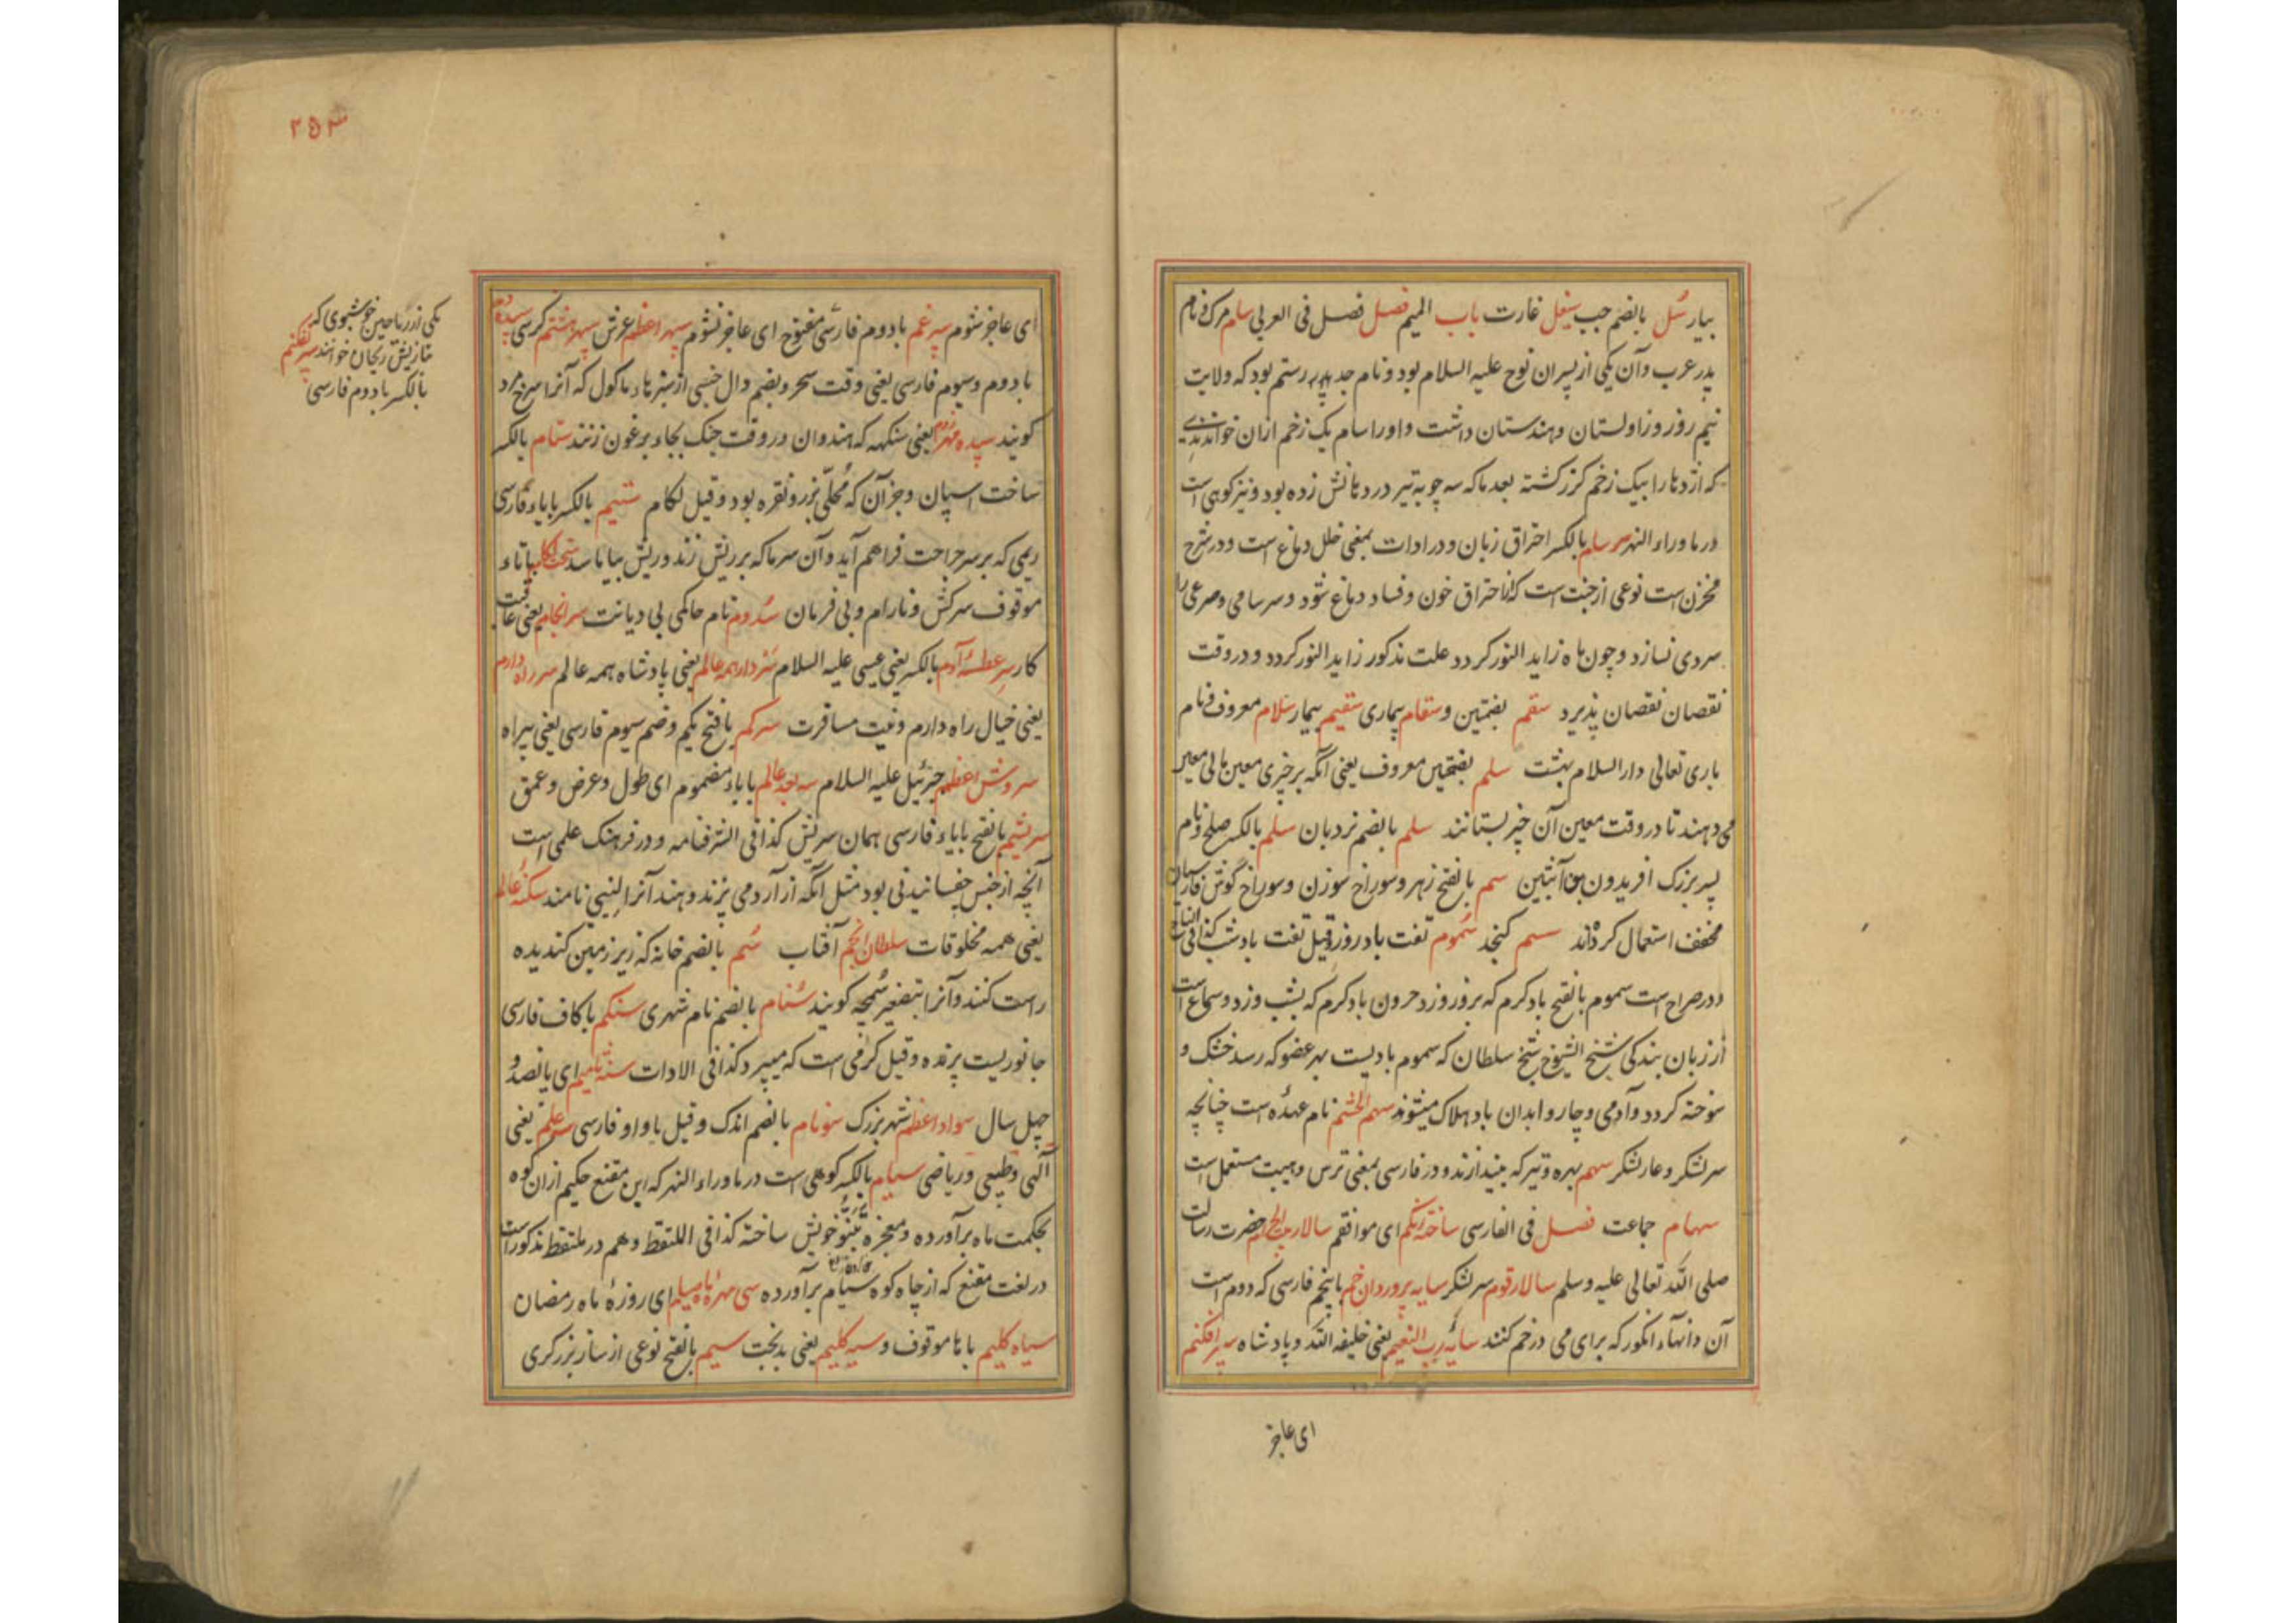 بسیار سُل بالضم حب سیغل غارت باب المیم فصل فصل فی العربی سام مرک و نام
پدر عرب و آن یکی از پسران نوح علیه السلام بود و نام جد پدر رستم بود که ولایت
نیم روز و زاولستان و هندستان داشت و او را سام یک زخم ازان خوانندی
که اژدها را بیک زخم کرز کشته بعد ماکه سه چوبه تیر در دهانش زده بود و نیز کوهی است
در ماوراء النهر سرسام بالکسر احتراق زبان و در ادات بمعنی خلل دماغ است و در شرح
مخزن است نوعی از جنت است که از احتراق خون و فساد دماغ شود و سرسامی و صرعی را
سردی نسازد و چون ماه زاید النور کردد علت مذکور زاید النور کردد و در وقت
نقصان نقصان پذیرد سقم بضمتین و سقام بیماری سقیم بیمار سلام معروف و نام
باری تعالی دار السلام بهشت سلم بفتحتین معروف یعنی آنکه بر چیزی معین مالی معین
می دهند تا در وقت معین آن چیز بستانند سلم بالضم نردبان سلم بالکسر صلح و نام
پسر بزرک افریدون بن آبتین سم بالفتح زهر و سوراخ سوزن و سوراخ کوش فارسیان
مخفف استعمال کرده‌اند سمسم کنجد سموم تفت باد روز و قیل تفت باد شب کذا فی التاج
و در صراح است سموم بالفتح باد کرم که بروز وزد حرون باد کرم که بشب وزد و سماع است
از زبان بندکی شیخ الشیوخ شیخ سلطان که سموم بادیست بهر عضو که رسد خشک و
سوخته کردد و آدمی و چاروا بدان باد هلاک میشوند سهم الحشم نام عهده است چنانچه
سرلشکر و عار لشکر سهم بهره و تیر که بیندازند و در فارسی بمعنی ترس و هیبت مستعمل است
سهام جماعت فصل فی الفارسی ساخته رنکم ای موافقم سالار بیت الحرام حضرت رسالت
صلی الله تعالی علیه و سلم سالار قوم سرلشکر سایه پروردان خم با پنجم فارسی که دوم است
آن دانهاء انکور که برای می در خم کنند سایهٔ رب النعیم یعنی خلیفه الله و پادشاه سپر افکنم
ای عاجز
۲۵۳
ای عاجز شوم سپرغم با دوم فارسی مفتوح ای عاجز نشوم سپهر اعظم عرش سپهر هشتم کرسی سپیده دم
با دوم و سیوم فارسی یعنی وقت سحر و بضم دال جنسی از سبزهاء ماکول که آنرا سرخ مرد
کویند سپیده مهره دم یعنی سنکهه که هندوان در وقت جنک بجاء برغون زنند ستام بالکسر
ساخت اسپان و جز آن که مُحلّی بزر و نقره بود و قیل لکام ستیم بالکسر با یاء فارسی
ریمی که بر سر جراحت فراهم آید و آن سرما که بر ریش زند و ریش بیاماسد سخت لکام با تاء
موقوف سرکش و نارام و بی فرمان سدوم نام حاکمی بی دیانت سرانجام یعنی عاقبت
کار سر عطسهٔ آدم بالکسر یعنی عیسی علیه السلام سردار همه عالم یعنی پادشاه همه عالم سر راه دارم
یعنی خیال راه دارم و نیت مسافرت سرکم بافتح یکم و ضم سیوم فارسی یعنی بیراه
سروش اعظم جبرئیل علیه السلام سه بعد عالم با باء مضموم ای طول و عرض و عمق
سریشم بالفتح با یاء فارسی همان سریش کذا فی الشرفنامه و در فرهنک علمی است
آنچه از جنس چفسانیدنی بود مثل آنکه از آرد می پزند و هند آنرا لیئی نامند سکنهٔ عالم
یعنی همه مخلوقات سلطان انجم آفتاب سُم بالضم خانه که زیر زمین کندیده
راست کنند و آنرا بتصغیر سُمچه کویند سُنام بالضم نام شهری سنکم با کاف فارسی
جانوریست پرنده و قیل کرمی است که میپرد کذا فی الادات سنهٔ ثامیم ای پانصد و
چهل سال سواد اعظم شهر بزرک سونام بالضم اندک و قیل با واو فارسی سه علم یعنی
آلهی و طبیعی و ریاضی سیام بالکسر کوهی است در ماوراء النهر که ابن مقنع حکیم ازان کوه
بحکمت ماه برآورده و معجزه تنبؤ خویش ساخته کذا فی اللتقط و هم در ملتقط مذکور است
در لغت مقنع که از چاه کوه سیام برآورده سی مهرهٔ ماه صیام ای روزهٔ ماه رمضان
سیاه کلیم با ها موقوف و سیه کلیم یعنی بدبخت سیم بالفتح نوعی از ساز بزرکری
یکی از ریاحین خوشبوی که
تازیش ریحان خوانند سپر نفکنم
بالکسر با دوم فارسی